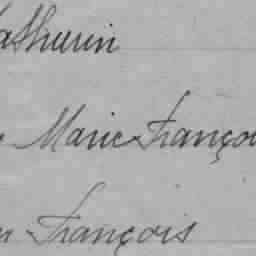 athurin
Marie Françoi
François